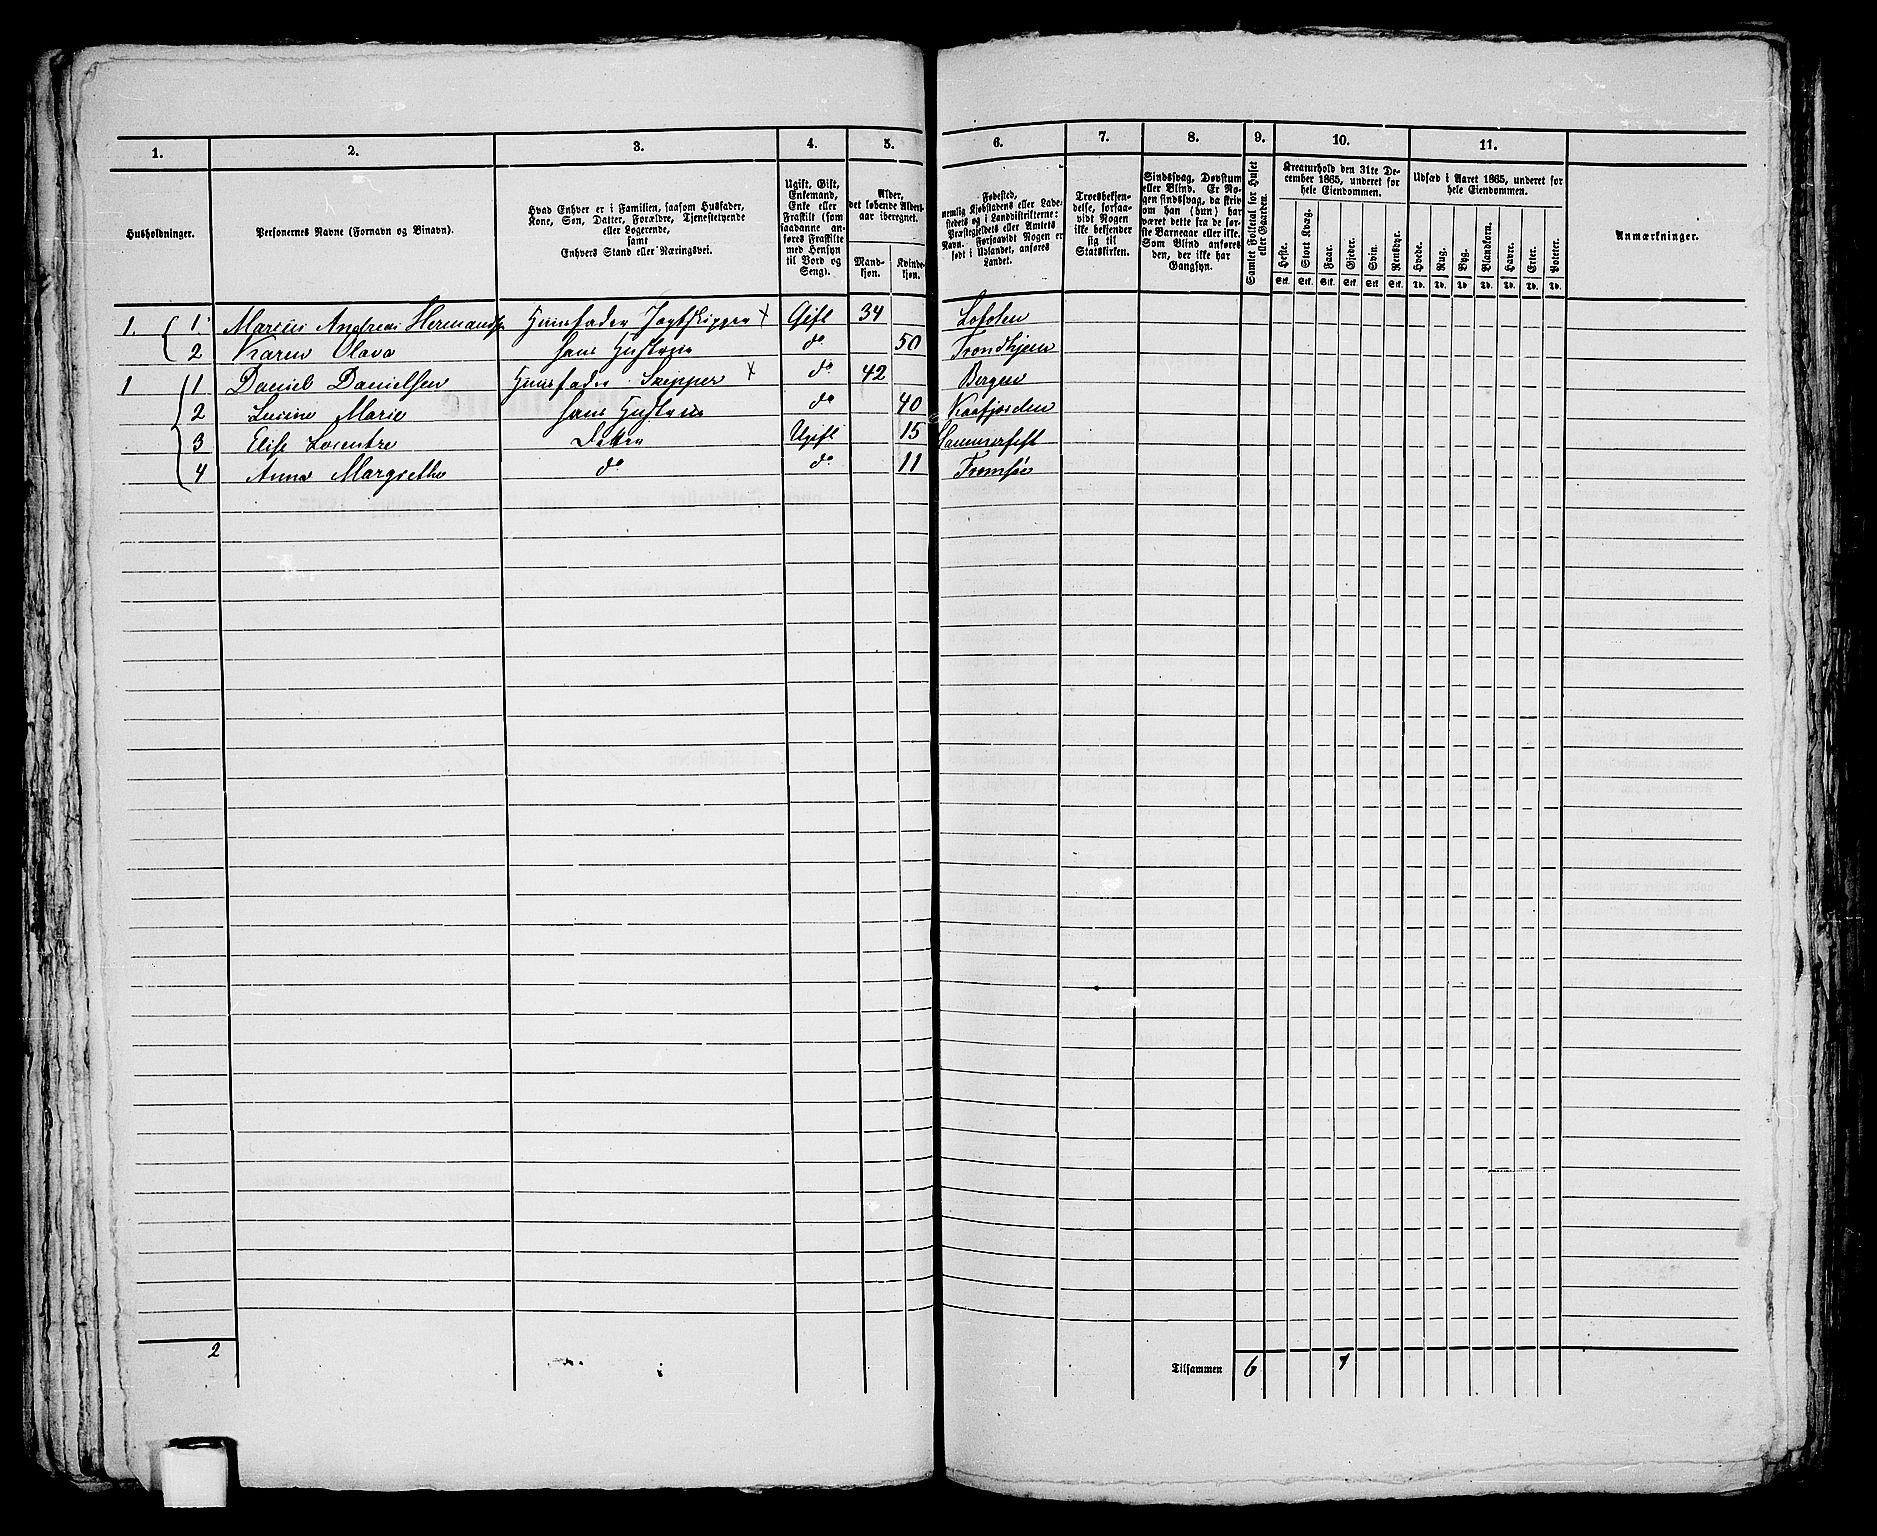 1. 2. 3. 4. 5. 6. 7. 8. 9. 10. 11.
Husholdninger.
Personernes Navne (Fornavn og Binavn).
Hvad Enhver er i Familien, saasom Husfader,
Kone, Søn, Datter, Forældre, Tjenestetyende
eller Logerende,
samt
Enhvers Stand eller Næringsvei.
Ugift, Gift,
Enkemand,
Enke eller
Fraskilt (som
saadanne an-
føres Fraskilte
med Hensyn
til Bord og
Seng).
Alder,
det løbende Alders-
aar iberegnet.
Mand-
kjøn.
Kvinde-
kjøn.
Fødested,
nemlig Kjøbstadens eller Lade-
stedets og i Landdistrikterne:
Præstegjeldets eller Amtets
Navn. Forsaavidt Nogen er
født i Udlandet, anføres
Landet.
Troesbekjen-
delse, forsaa-
vidt Nogen
ikke bekjender
sig til
Statskirken.
Sindssvag, Døvstum
eller Blind. Er No-
gen sindssvag, da skriv
om han (hun) har
været dette fra de før-
ste Barneaar eller ikke.
Som Blind anføres
den, der ikke har
Gangsyn.
Samlet Folketal for Huset
eller Gaarden.
Kreaturhold den 31te De-
cember 1865, underet for
hele Eiendommen.
Heste. Stort Kvæg. Faar. Gjeder. Svin. Rensdyr.
Stk. Stk. Stk. Stk. Stk. Stk.
Udsæd i Aaret 1865, underet for
hele Eiendommen.
Hvede. Rug. Byg. Blandkorn. Havre. Erter. Poteter.
Td. Td. Td. Td. Td. Td. Td.
Anmærkninger.
1. 1. Marius Andreas Hermansen Huusfader Jagtskipper x Gift 34 Lofoten
2 Karen Olava hans Hustrue do 50 Trondhjem
1 1 Daniel Danielsen Huusfader Skipper x do 42 Bergen
2 Marie hans Hustrue do 40 Kaafjorden
3 Elise Datter Ugift 15 Hammerfest
4 Anna Margrethe do do 11 Tromsøe
2 Tilsammen 6 1